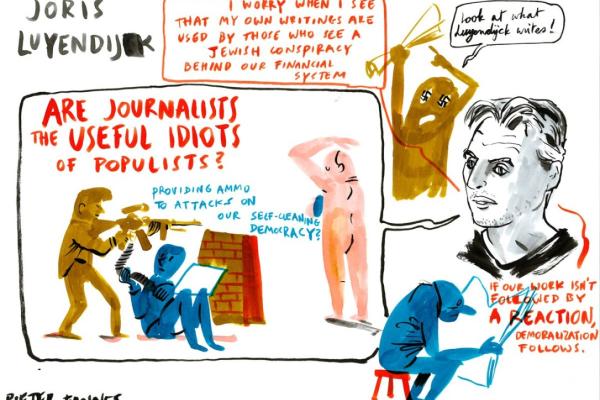 JORIS
LUYENDIJK
I WORRY WHEN I SEE
THAT MY OWN WRITINGS ARE
USED BY THOSE WHO SEE A
JEWISH CONSPIRACY
BEHIND OUR FINANCIAL
SYSTEM
Look at what
Luyendijck writes!
ARE JOURNALISTS
THE USEFUL IDIOTS
OF POPULISTS?
PROVIDING AMMO
TO ATTACKS ON
OUR SELF-CLEANING
DEMOCRACY?
IF OUR WORK ISN'T
FOLLOWED BY
A REACTION,
DEMORALIZATION
FOLLOWS.